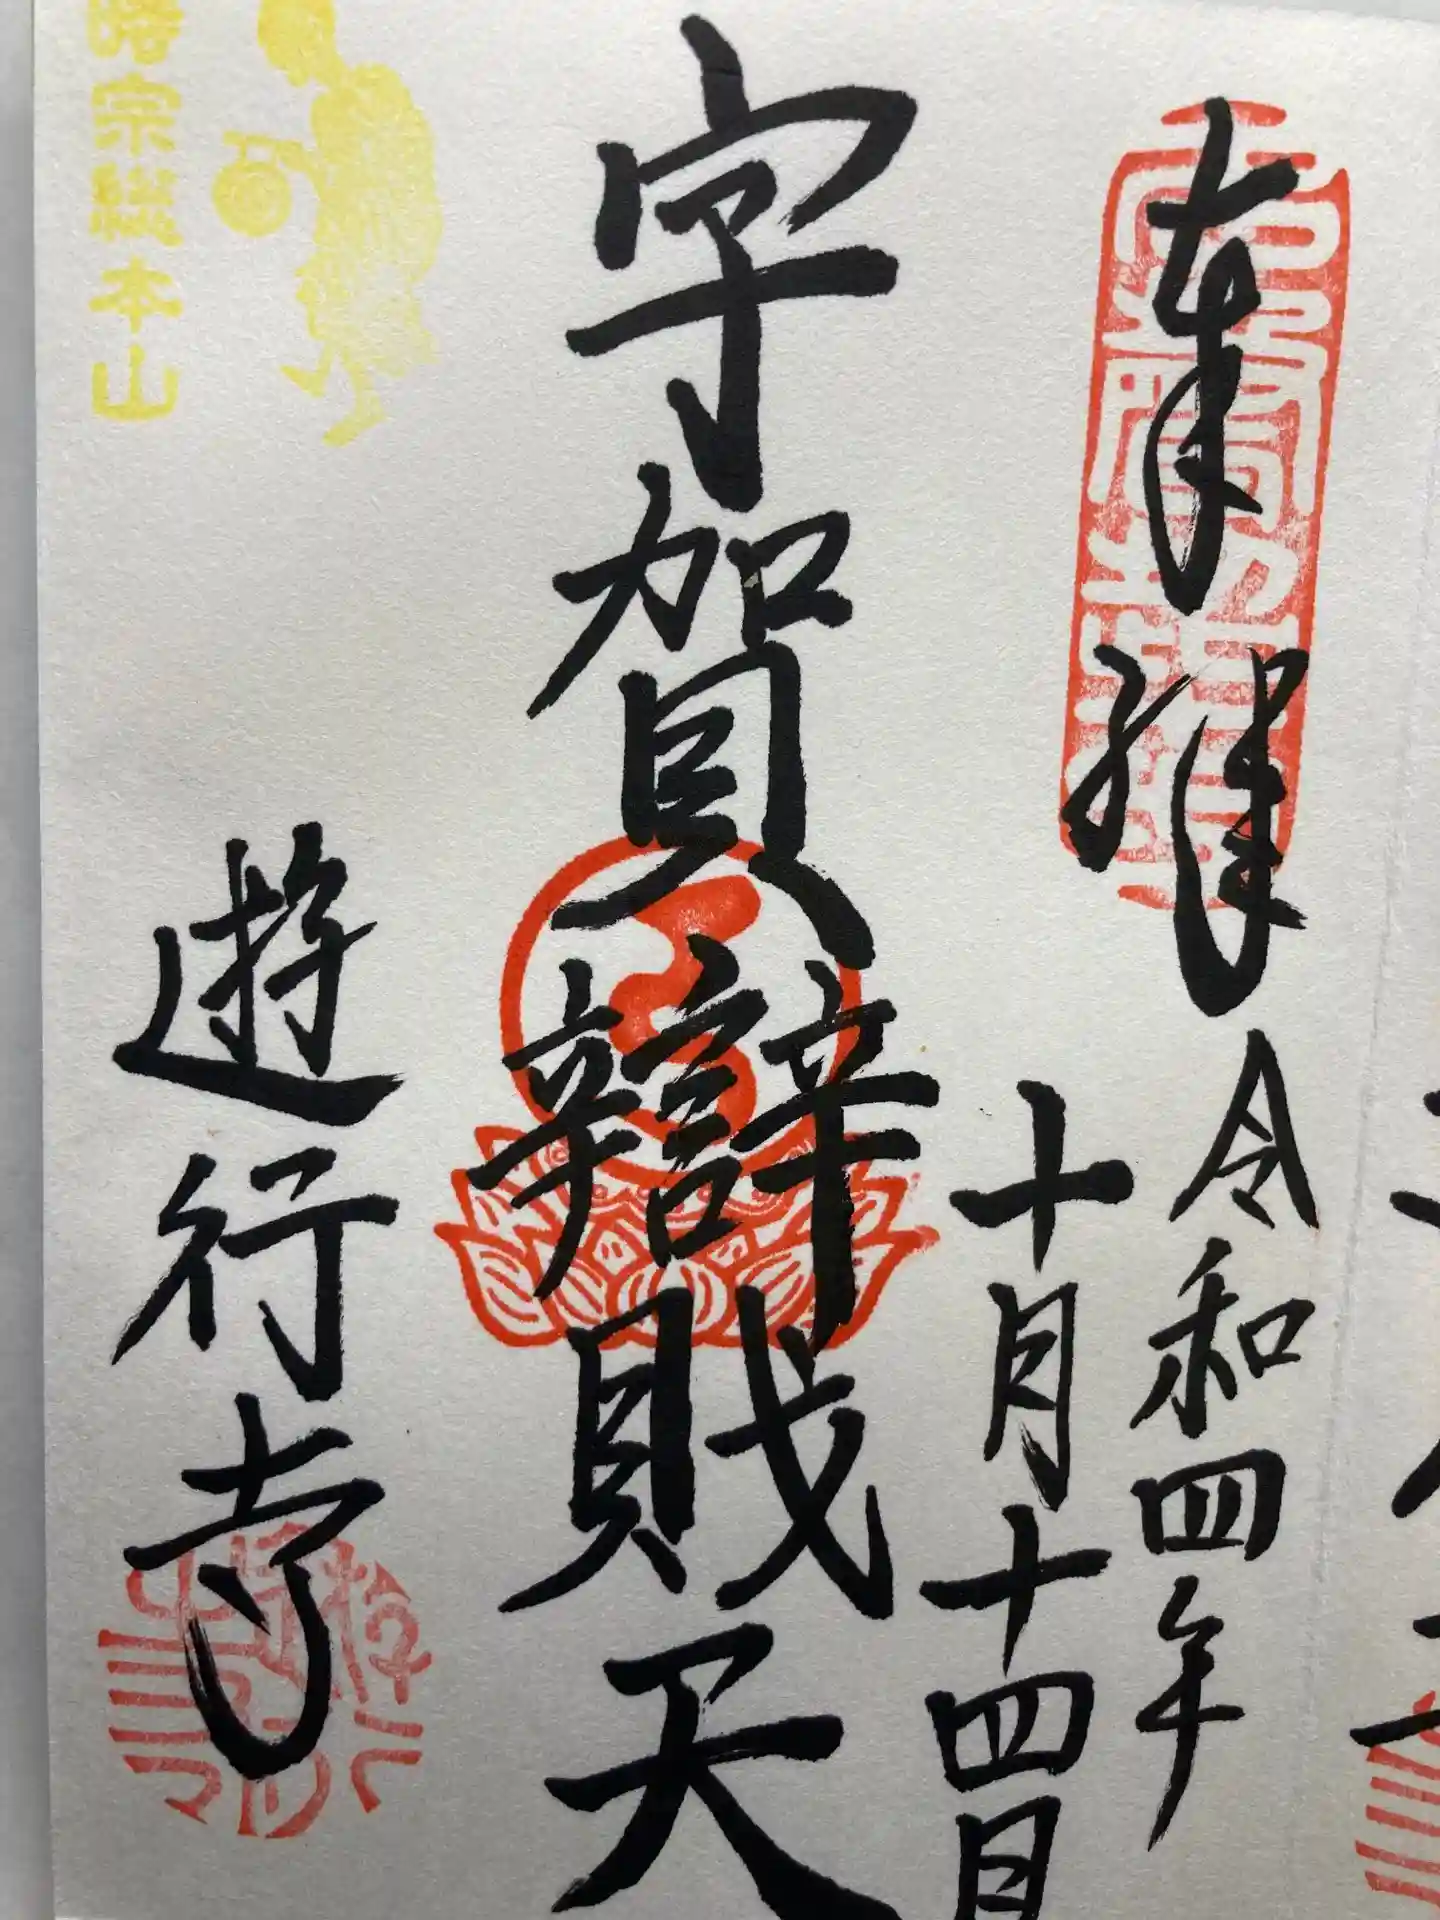 奉拝
令和四年
十月十四日
宇賀辯財天
遊行寺
宗総本山